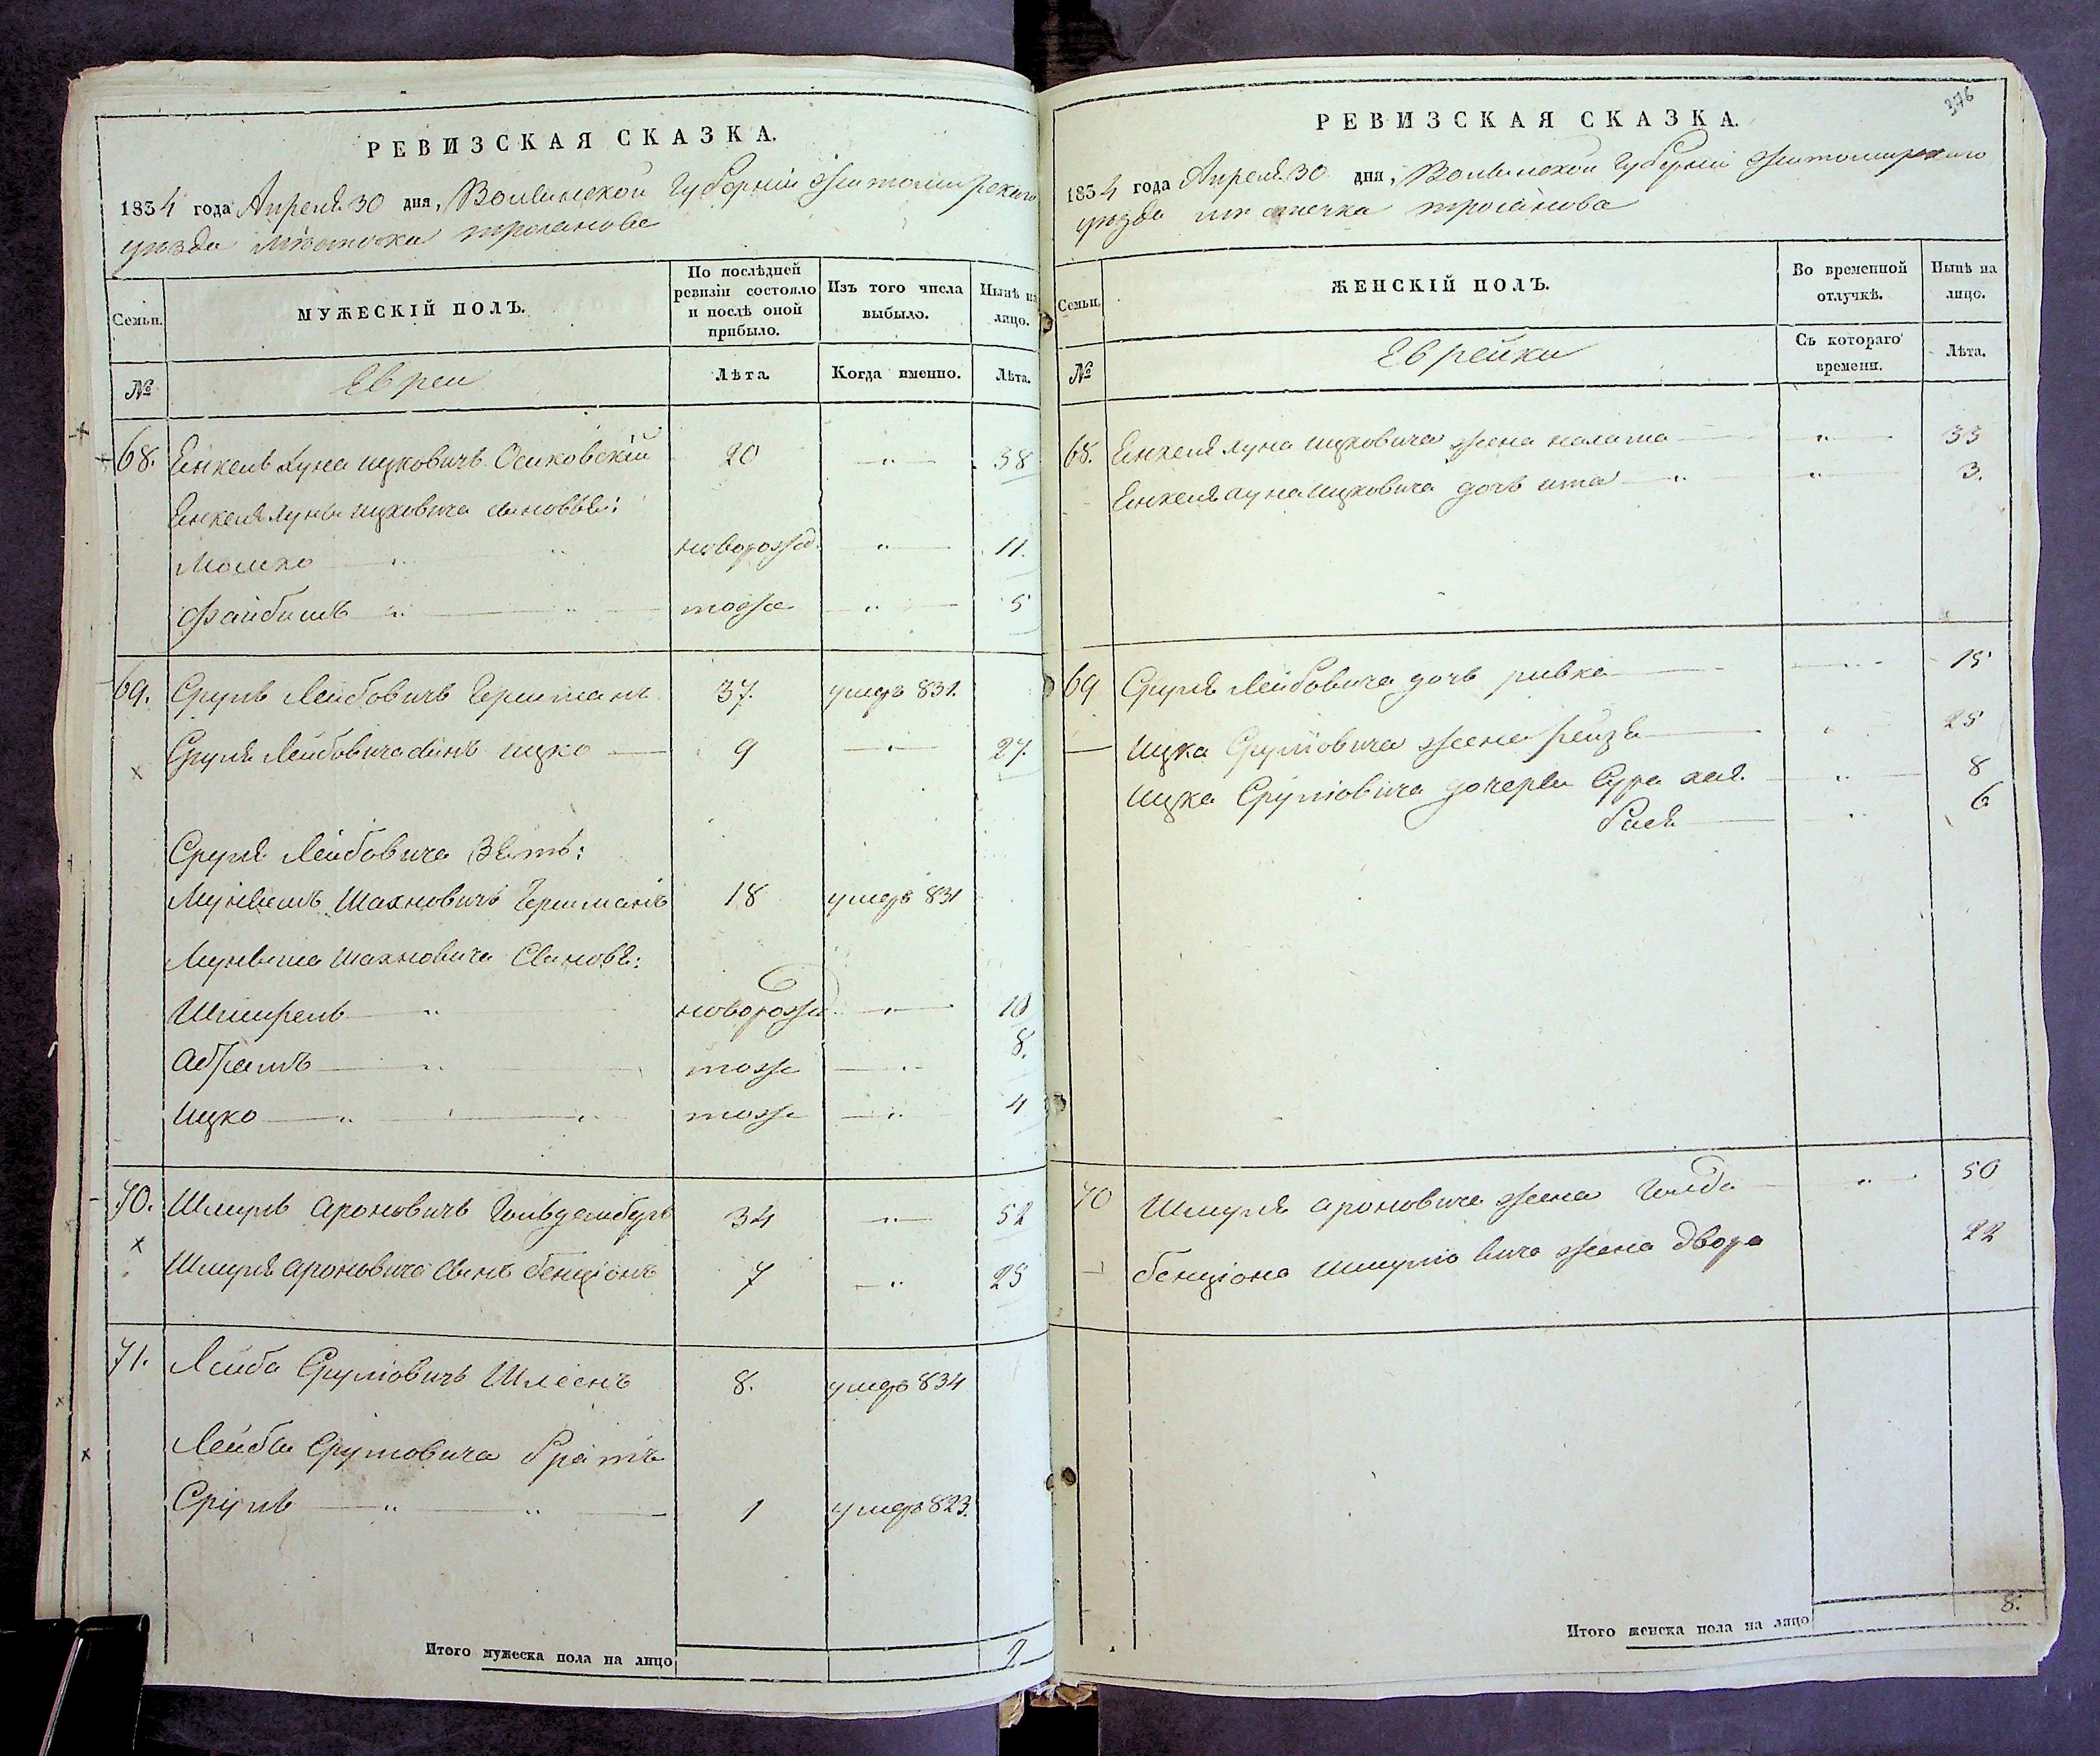 РЕВИЗСКАЯ СКАЗКА.
1834 года Апреля 30 дня, Волынской Губерніи Житомирскаго
уезда местечка троянова
Семьи.
МУЖЕСКІЙ ПОЛЪ.
По послѣдней ревизіи состояло и послѣ оной прибыло.
Изъ того числа выбыло.
Нынѣ на лицо.
№
Евреи
Лѣта
Когда именно.
Лѣта.
68. Енкель Хуна ицковичъ Осиковскій 20 — " — 38
Енкеля хуны ицковича сыновья:
Мошко новорожд. — " — 11.
Файбишъ тоже — " — 5
69. Сруль Лейбовичъ Гершманъ 37. умеръ 831.
Сруля Лейбовича сынъ ицко 9 — " — 27.
Сруля Лейбовича Зять:
Шахновичъ Гершманъ 18 умеръ 831
Шахновича Сыновья:
новорожд. — " — 10
Абрамъ тоже — " — 8.
Ицко тоже — " — 4
70. Шмуль ароновичъ 34 — " — 52
Шмуля ароновича сынъ бенціонъ 7 — " — 25
71. Лейба Сруліовичъ 8. умеръ 834
Лейба Сруліовича братъ
Сруль 1 умеръ 823.
Итого мужеска пола на лицо 9
376
РЕВИЗСКАЯ СКАЗКА.
1834 года Апреля 30 дня, Волынской Губерніи Житомирскаго
уезда местечка троянова
Семьи.
ЖЕНСКІЙ ПОЛЪ.
Во временной отлучкѣ.
Нынѣ на лицо.
№
Еврейки
Съ котораго времени.
Лѣта.
68. Енкеля хуна ицковича жена — " — 33
Енкеля хуна ицковича дочь ита — " — 3.
69 Сруля Лейбовича дочь ривка — " — 15
Ицка Сруліовича жена рейзя " 25
Ицка Сруліовича дочери Сура хая — " — 8
бася " 6
70 Шмуля ароновича жена голда — " — 50
бенціона шмуліовича жена двора 22
Итого женска пола на лицо 8.